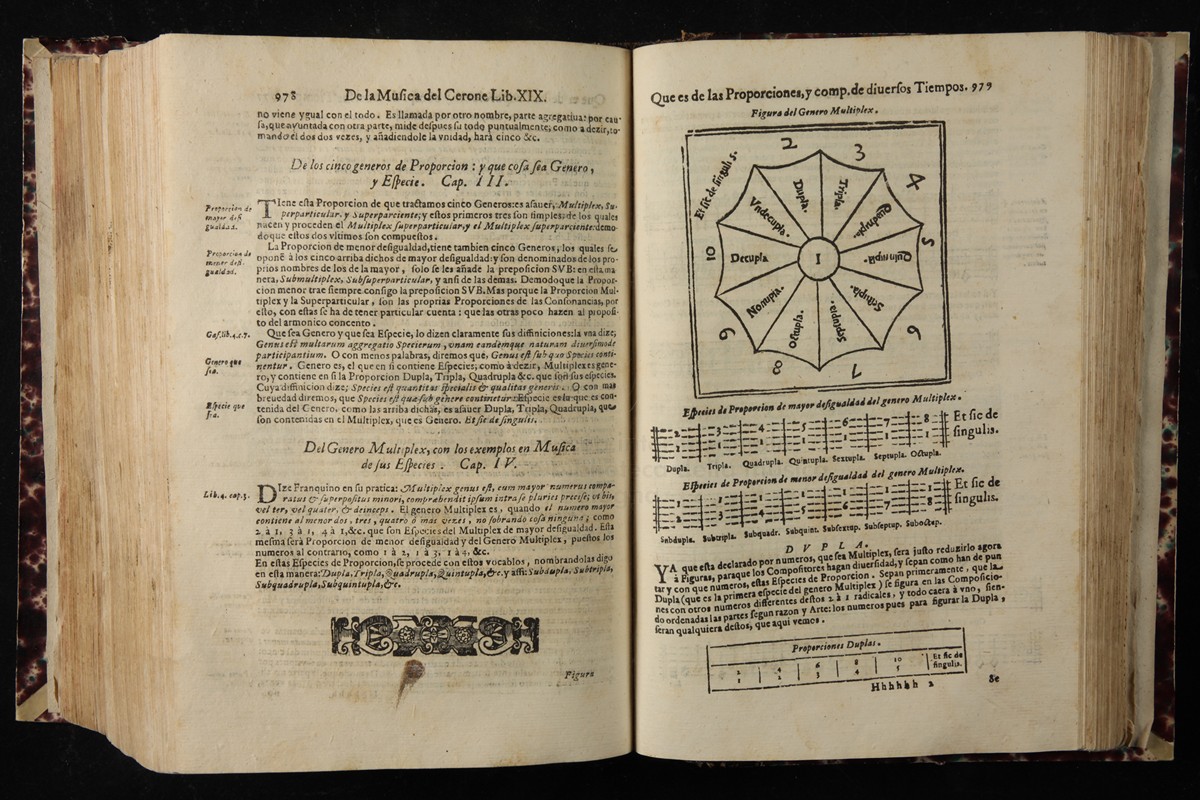 978 De la Musica del Cerone Lib. XIX.
no viene ygual con el todo. Es llamada por otro nombre, parte agregatiua: por cau-
sa, que ayuntada con otra parte, mide despues su todo puntualmente; como a dezir, to-
mando el dos dos vezes, y añadiendole la vnidad, harà cinco &c.
De los cinco generos de Proporcion: y que cosa sea Genero,
y Especie. Cap. III.
Proporcion de
mayor desi
gualdad.
TIene esta Proporcion de que tractamos cinco Generos: es asauer, Multiplex, Su-
perparticular, y Superparciente; y estos primeros tres son simples: de los quales
nacen y proceden el Multiplex superparticular, y el Multiplex superparciente: demo-
do que estos dos vltimos son compuestos.
Proporcion de
menor desi-
gualdad.
La Proporcion de menor desigualdad, tiene tambien cinco Generos, los quales se
oponẽ à los cinco arriba dichos de mayor desigualdad: y son denominados de los pro-
prios nombres de los de la mayor, solo se les añade la preposicion SVB: en esta ma
nera, Submultiplex, Subsuperparticular, y ansi de las demas. Demodo que la Propor-
cion menor trae siempre consigo la preposicion SVB. Mas porque la Proporcion Mul-
tiplex y la Superparticular, son las proprias Proporciones de las Consonancias, por
esto, con estas se ha de tener particular cuenta: que las otras poco hazen al proposi-
to del armonico concento.
Gaf. lib. 4. c. 7.
Que sea Genero y que sea Especie, lo dizen claramente sus diffiniciones: la vna dize;
Genus est multarum aggregatio Specierum, vnam eandemque naturam diuersimode
participantium. O con menos palabras, diremos que, Genus est sub quo Species conti-
Genero que
sea.
nentur. Genero es, el que en si contiene Especies; como à dezir, Multiplex es gene-
ro, y contiene en si la Proporcion Dupla, Tripla, Quadrupla &c. que son sus especies.
Cuya diffinicion dize; Species est quantitas specialis & qualitas generis. O con mas
Especie que
sea.
breuedad diremos, que Species est quæ sub genere continetur: Especie es la que es con-
tenida del Genero. como las arriba dichas, es asauer Dupla, Tripla, Quadrupla, que
son contenidas en el Multiplex, que es Genero. Et sic de singulis.
Del Genero Multiplex, con los exemplos en Musica
de sus Especies. Cap. IV.
Lib. 4. cap. 3.
DIze Franquino en su pratica: Multiplex genus est, cum mayor numerus compa-
ratus & superpositus minori, comprahendit ipsum intra se pluries precise; vt bis,
vel ter, vel quater, & deinceps. El genero Multiplex es, quando el numero mayor
contiene al menor dos, tres, quatro ò mas vezes, no sobrando cosa ninguna; como
2 à 1, 3 à 1, 4 à 1, &c. que son Especies del Multiplex de mayor desigualdad. Esta
mesma serà Proporcion de menor desigualdad y del Genero Multiplex, puestos los
numeros al contrario, como 1 à 2, 1 à 3, 1 à 4, &c.
En estas Especies de Proporcion, se procede con estos vocablos, nombrandolas digo
en esta manera: Dupla, Tripla, Quadrupla, Quintupla, &c. y assi: Subdupla, Subtripla,
Subquadrupla, Subquintupla, &c.
Figura
Que es de las Proporciones, y comp. de diuersos Tiempos. 979
Figura del Genero Multiplex.
2
3
4
5
6
7
8
9
10
Et sic de singulis.
Dupla.
Tripla.
Quadrupla.
Quintupla.
Sextupla.
Septupla.
Octupla.
Nonupla.
Decupla
Vndecupla.
1
Especies de Proporcion de mayor desigualdad del genero Multiplex.
2 3 4 5 6 7 8 Et sic de
1 1 1 1 1 1 1 singulis.
Dupla. Tripla. Quadrupla. Quintupla. Sextupla. Septupla. Octupla.
Especies de Proporcion de menor desigualdad del genero Multiplex.
1 1 1 1 1 1 1 Et sic de
2 3 4 5 6 7 8 singulis.
Subdupla. Subtripla. Subquadr. Subquint. Subsextup. Subseptup. Suboctup.
DVPLA.
YA que esta declarado por numeros, que sea Multiplex, sera justo reduzirlo agora
à Figuras, paraque los Compositores hagan diuersidad, y sepan como han de pun
tar y con que numeros, estas Especies de Proporcion. Sepan primeramente, que la
Dupla (que es la primera especie del genero Multiplex) se figura en las Composicio-
nes con otros numeros differentes destos 2 à 1 radicales, y todo caera à vno, sien-
do ordenadas las partes segun razon y Arte: los numeros pues para figurar la Dupla,
seran qualquiera destos, que aqui vemos.
Proporciones Duplas.
2 4 6 8 10 Et sic de
1 2 3 4 5 singulis.
Hhhhhh 2
Se